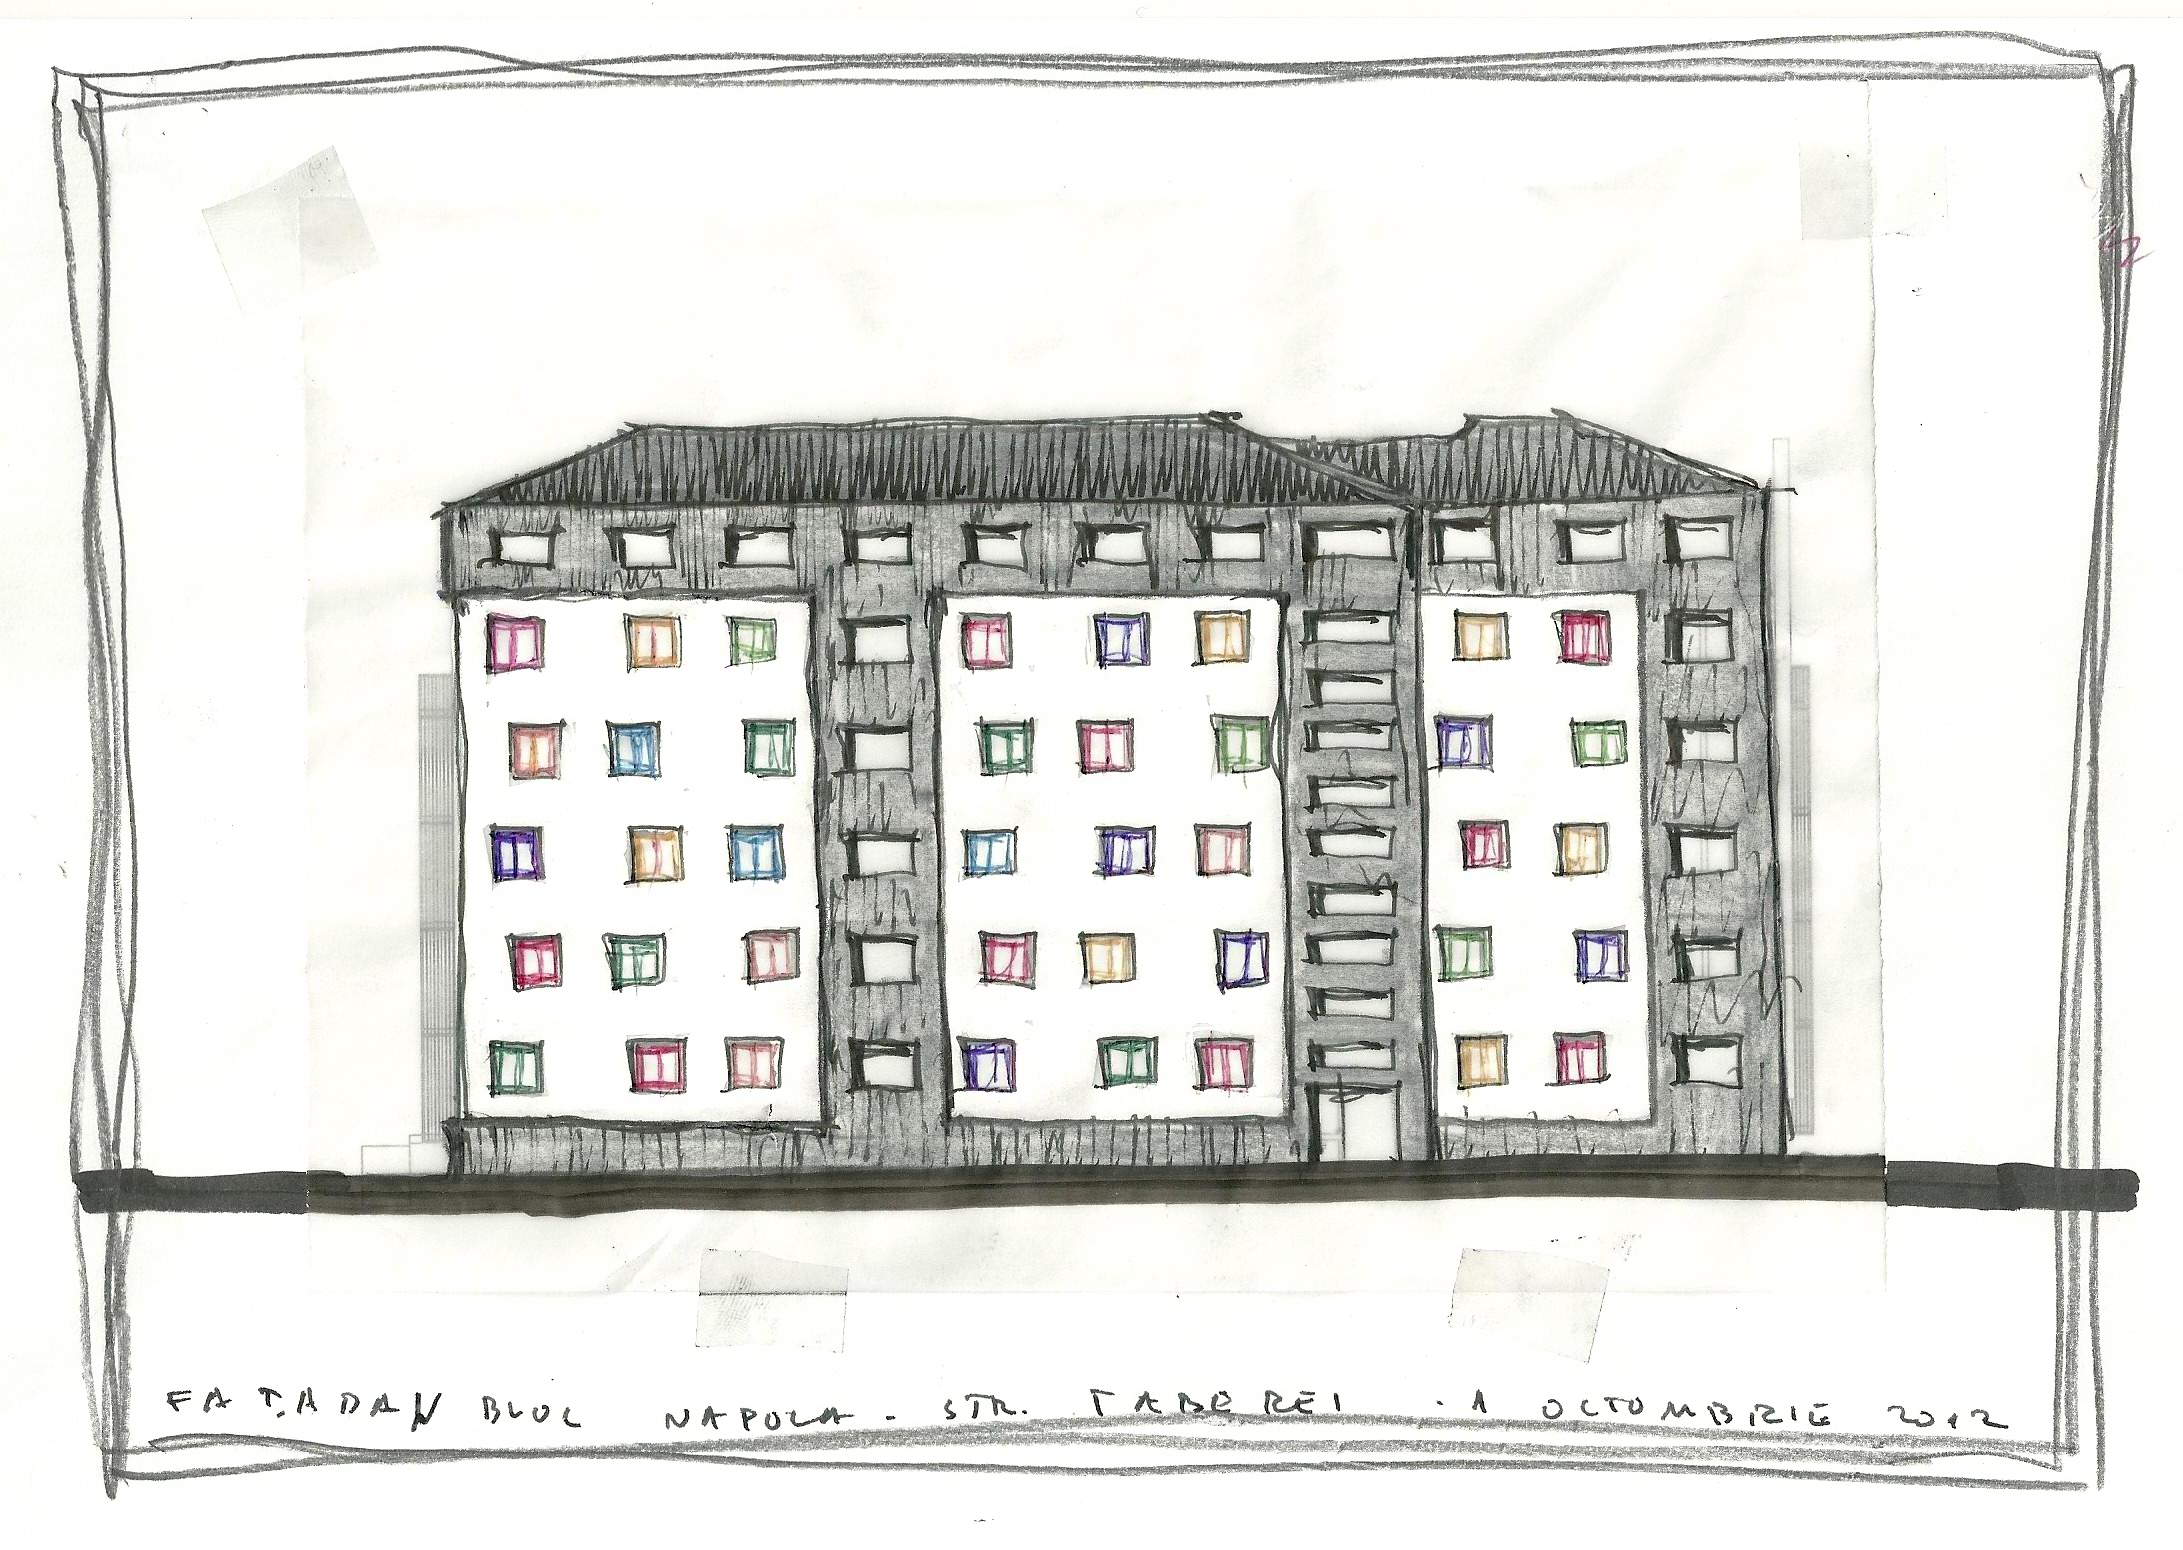 FAȚADA N BLOC NAPOCA - STR. TABEREI - 1 OCTOMBRIE 2012